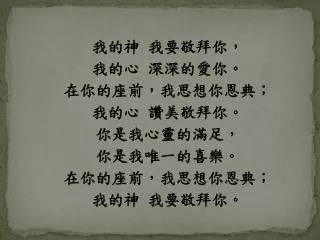 我的神 我要敬拜你，
我的心 深深的愛你。
在你的座前，我思想你恩典；
我的心 讚美敬拜你。
你是我心靈的滿足，
你是我唯一的喜樂。
在你的座前，我思想你恩典；
我的神 我要敬拜你。